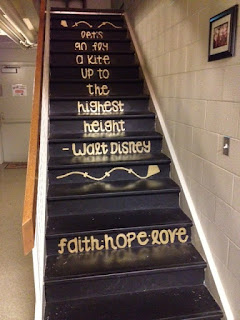 let's
go fly
a kite
up to
the
highest
height
- Walt Disney
faith.hope.love